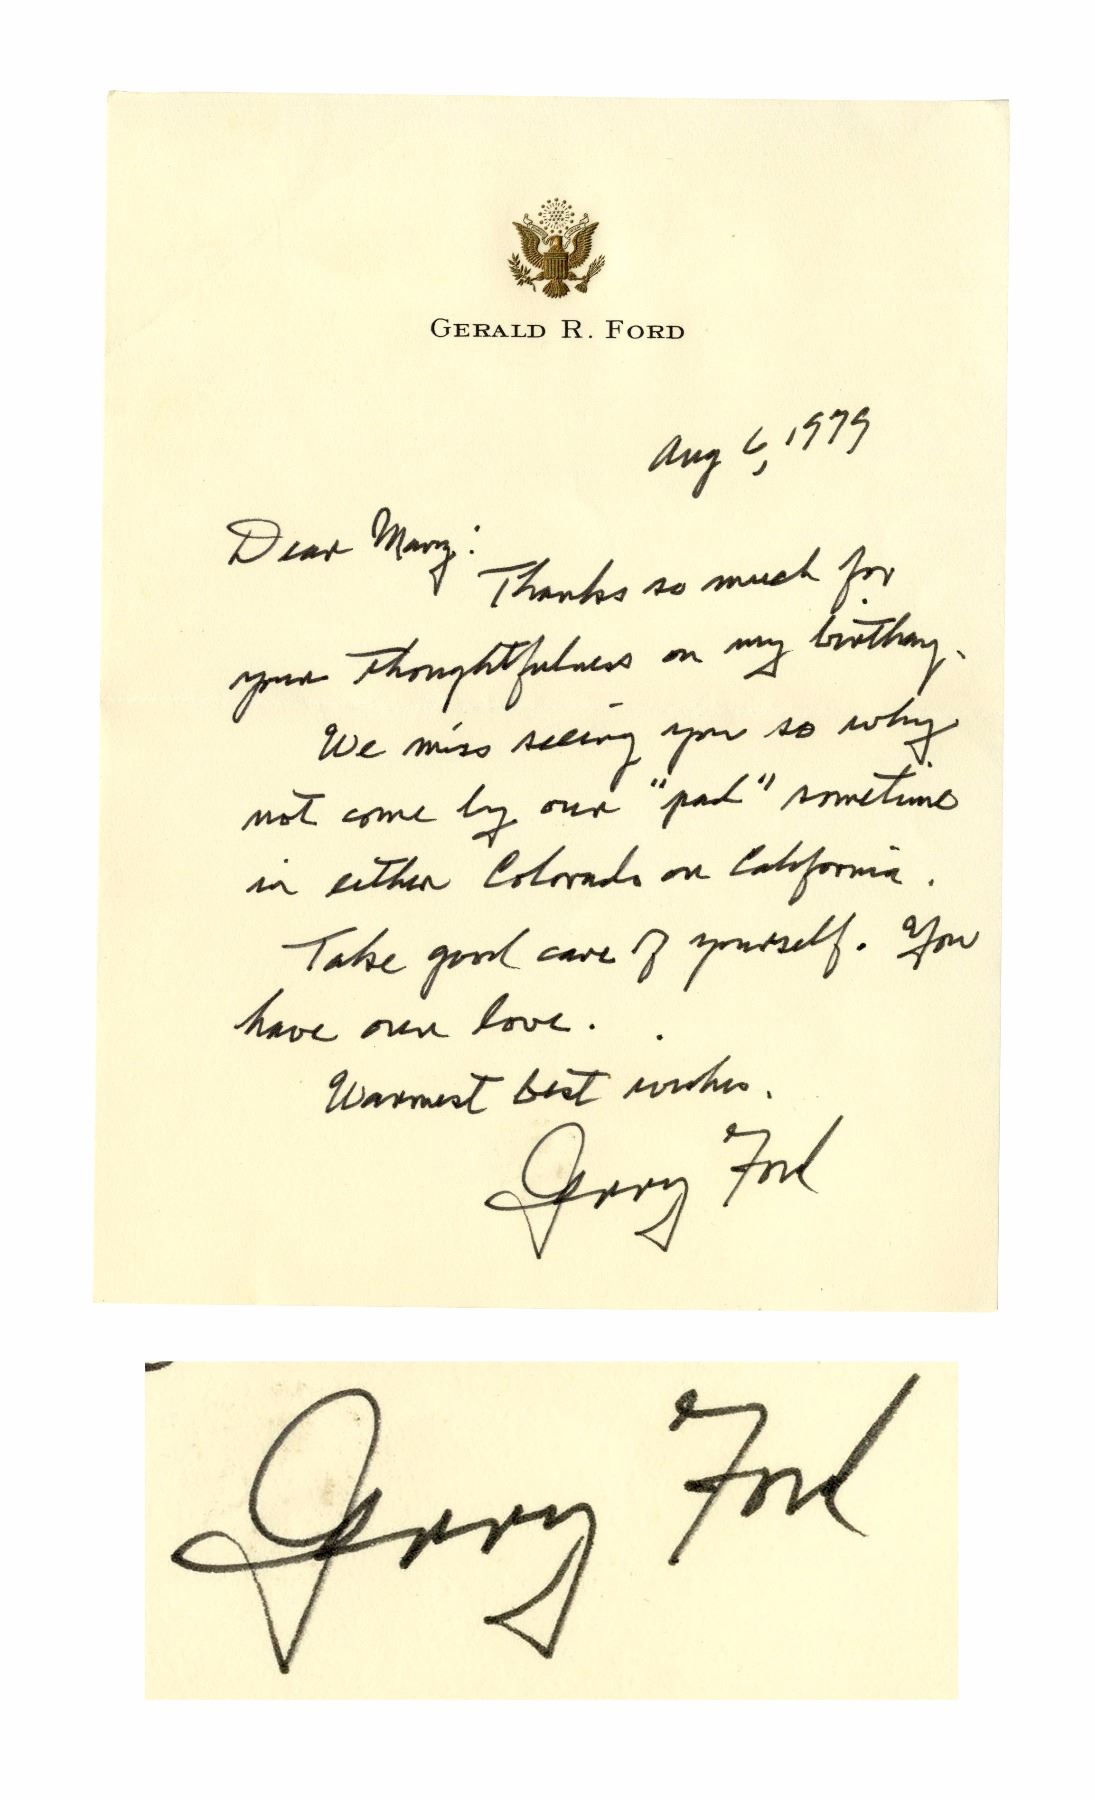 GERALD R. FORD
Aug 6, 1979
Dear Mary:
Thanks so much for
your thoughtfulness on my birthay.
We miss seeing you so why
not come by our "pad" sometime
in either Colorado or California.
Take good care of yourself. You
have our love.
Warmest best wishes.
Jerry Ford
Jerry Ford